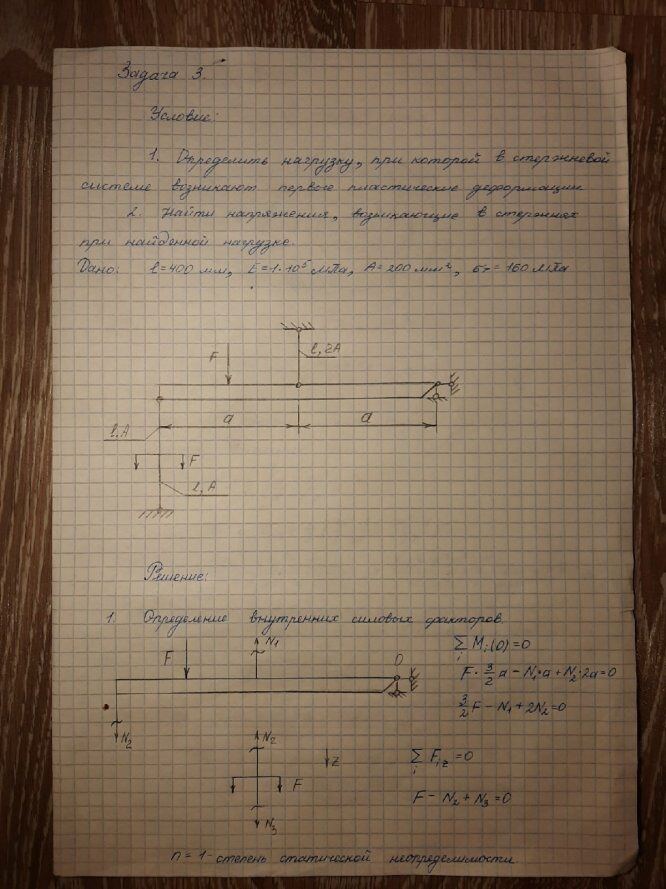 Задача 3.
Условие:
1. Определить нагрузку, при которой в стержневой
системе возникают первые пластические деформации.
2. Найти напряжения, возникающие в стержнях
при найденной нагрузке.
Дано: l=400 мм, E=1·10⁵ МПа, A=200 мм², σт=160 МПа
F
l, 2A
l, A
a
a
F
l, A
Решение:
1. Определение внутренних силовых факторов.
F
N₁
O
N₂
∑ Mᵢ(O)=0
i
F·3/2a-N₁·a+N₂·2a=0
3/2F-N₁+2N₂=0
N₂
F
z
N₃
∑ Fᵢz=0
i
F-N₂+N₃=0
n=1-степень статической неопределимости